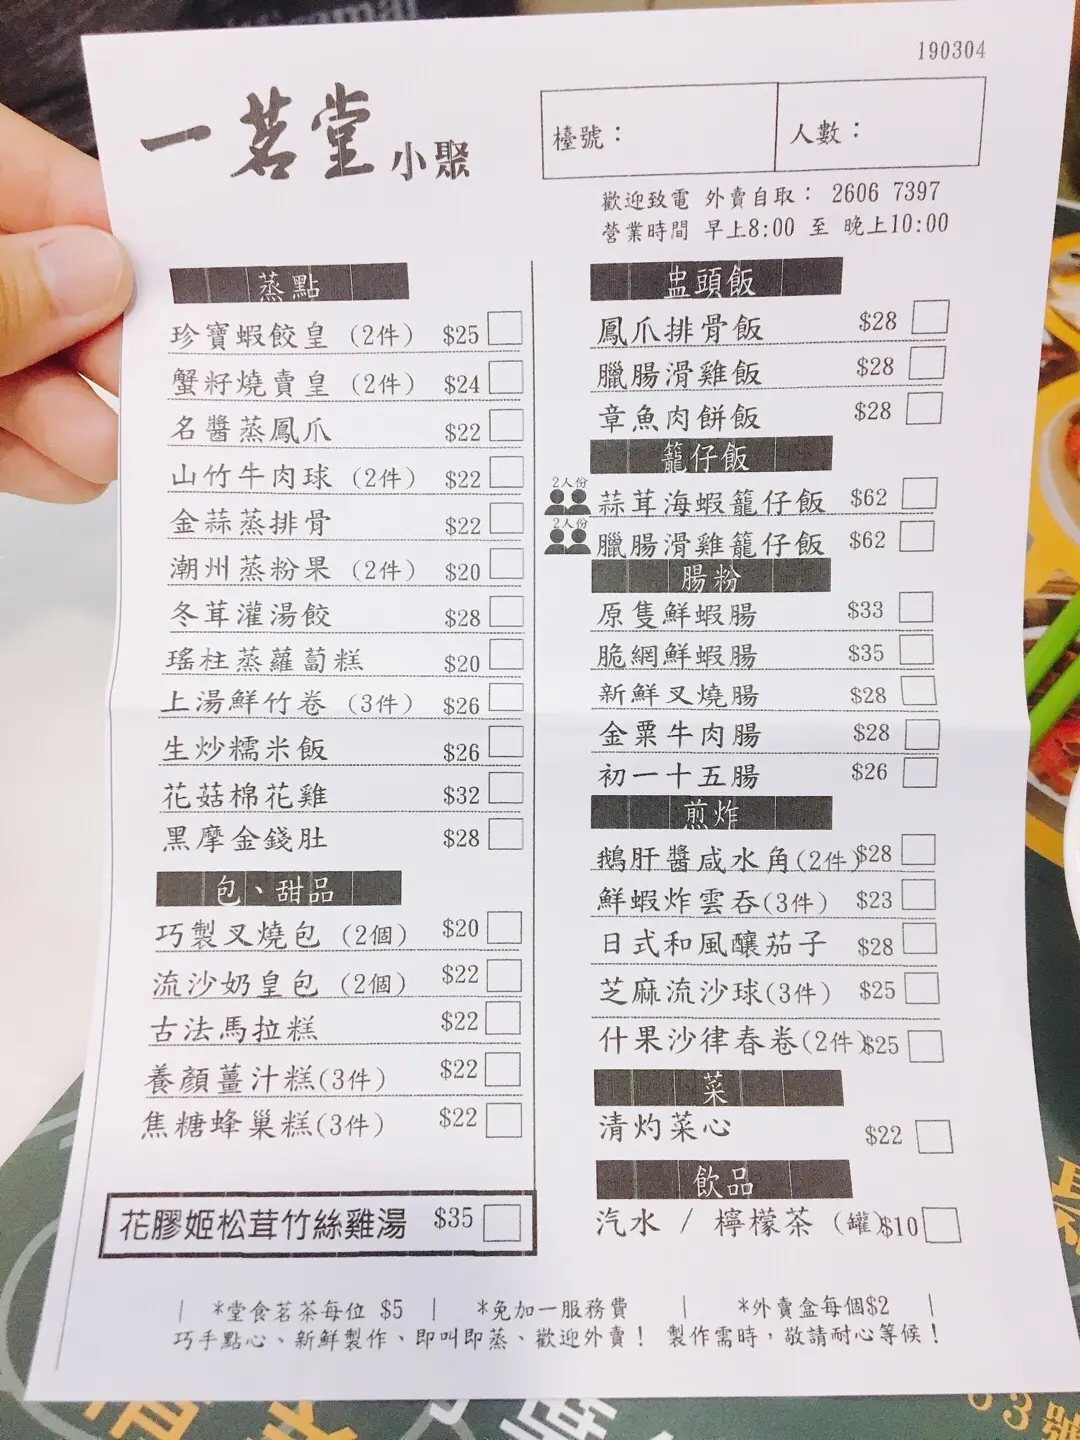 190304
一茗堂小聚
檯號：
人數：
歡迎致電 外賣自取： 2606 7397
營業時間 早上8:00 至 晚上10:00
蒸點
珍寶蝦餃皇 (2件) $25
蟹籽燒賣皇 (2件) $24
名醬蒸鳳爪 $22
山竹牛肉球 (2件) $22
金蒜蒸排骨 $22
潮州蒸粉果 (2件) $20
冬茸灌湯餃 $28
瑤柱蒸蘿蔔糕 $20
上湯鮮竹卷 (3件) $26
生炒糯米飯 $26
花菇棉花雞 $32
黑摩金錢肚 $28
包、甜品
巧製叉燒包 (2個) $20
流沙奶皇包 (2個) $22
古法馬拉糕 $22
養顏薑汁糕(3件) $22
焦糖蜂巢糕(3件) $22
花膠姬松茸竹絲雞湯 $35
盅頭飯
鳳爪排骨飯 $28
臘腸滑雞飯 $28
章魚肉餅飯 $28
籠仔飯
2人份
蒜茸海蝦籠仔飯 $62
2人份
臘腸滑雞籠仔飯 $62
腸粉
原隻鮮蝦腸 $33
脆網鮮蝦腸 $35
新鮮叉燒腸 $28
金粟牛肉腸 $28
初一十五腸 $26
煎炸
鵝肝醬咸水角(2件) $28
鮮蝦炸雲吞(3件) $23
日式和風釀茄子 $28
芝麻流沙球(3件) $25
什果沙律春卷(2件) $25
菜
清灼菜心 $22
飲品
汽水 / 檸檬茶 (罐) $10
| *堂食茗茶每位 $5 | *免加一服務費 | *外賣盒每個$2 |
巧手點心、新鮮製作、即叫即蒸、歡迎外賣！ 製作需時，敬請耐心等候！
63號